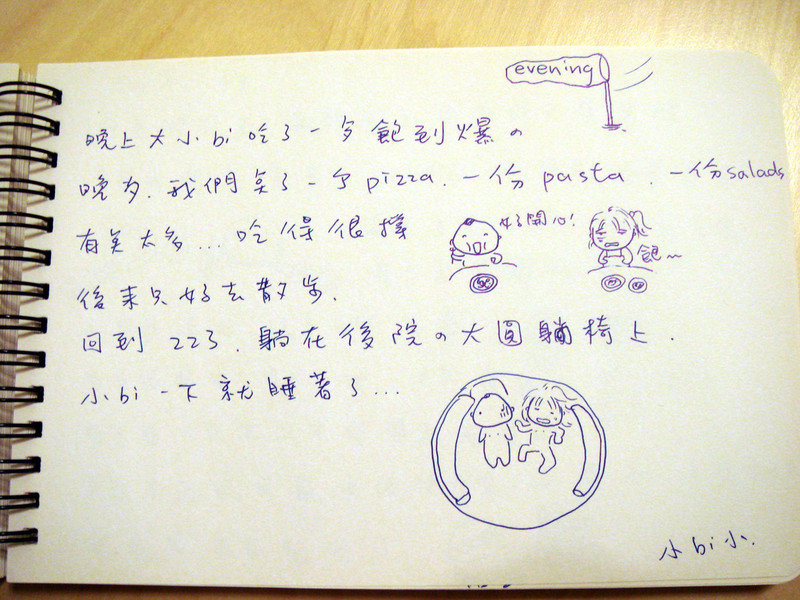 evening
晚上大小bi吃了一夕飽到爆の
晚夕.我們買了一夕pizza.一份pasta.一份salads
有買太多...吃得很撐
好開心!
飽~
後來只好去散步.
回到223.躺在後院の大圓躺椅上.
小bi一下就睡著了...
小bi小.